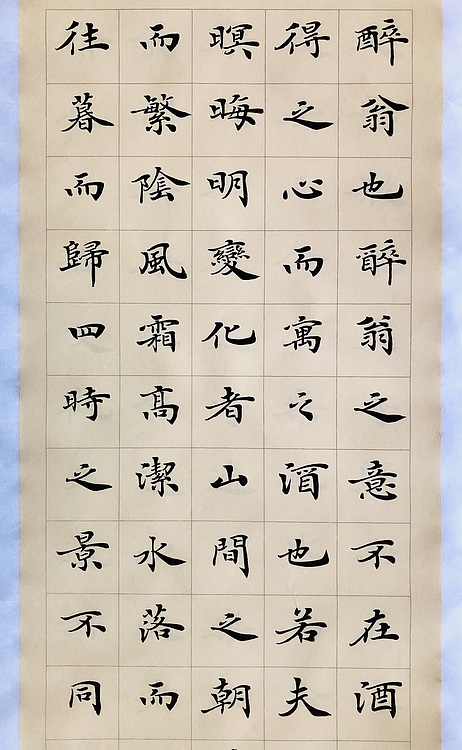 醉翁也醉翁之意不在酒
得之心而寓之酒也若夫
暝晦明變化者山間之朝
而繁陰風霜高潔水落而
往暮而歸四時之景不同